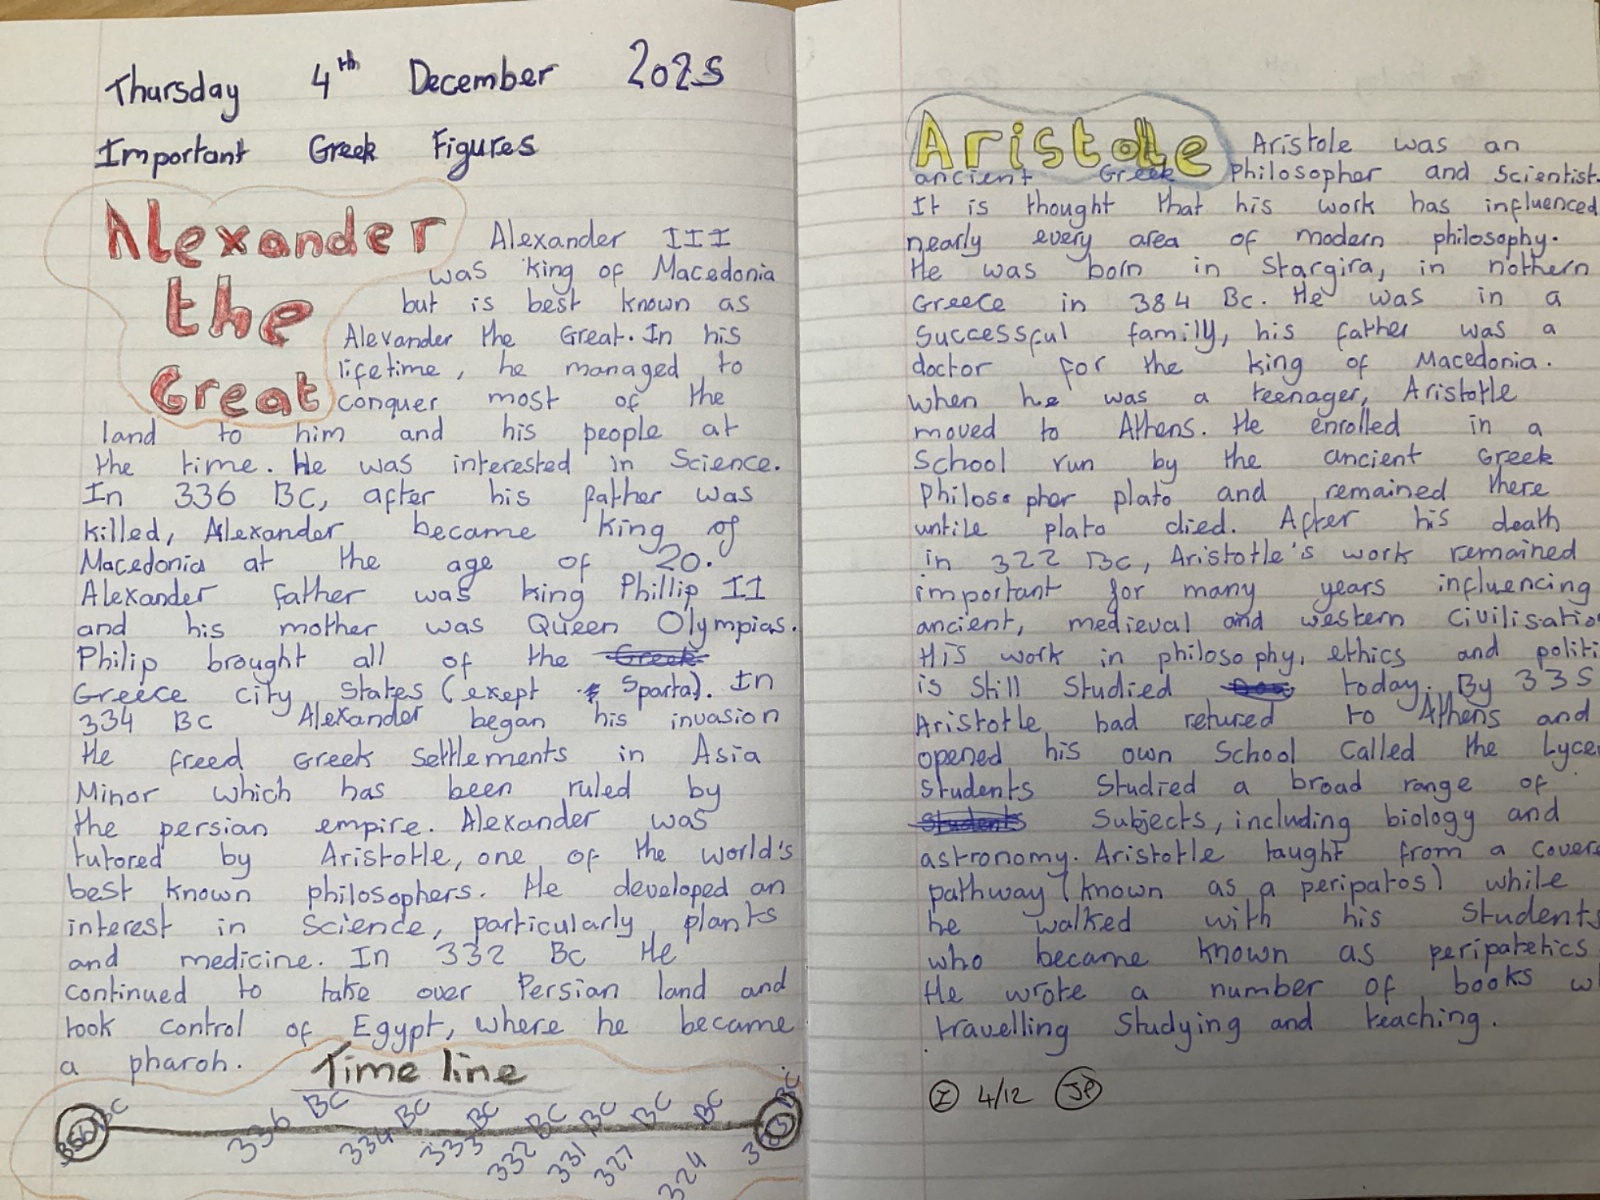 Thursday 4th December 2025
Important Greek Figures
Alexander
the
Great
Alexander III
was king of Macedonia
but is best known as
Alexander the Great. In his
lifetime, he managed to
conquer most of the
land to him and his people at
the time. He was interested in Science.
In 336 BC, after his father was
killed, Alexander became king of
Macedonia at the age of 20.
Alexander father was king Phillip II
and his mother was Queen Olympias.
Philip brought all of the Greek
Greece city states (exept Sparta). In
334 BC Alexander began his invasion
He freed Greek settlements in Asia
Minor which has been ruled by
the persian empire. Alexander was
tutored by Aristotle, one of the world's
best known philosophers. He developed an
interest in Science, particularly plants
and medicine. In 332 BC He
continued to take over Persian land and
took control of Egypt, where he became
a pharoh.
Time line
356 BC 336 BC 334 BC 333 BC 332 BC 331 BC 327 BC 324 BC BC
Aristotle Aristole was an
ancient Greek Philosopher and Scientist.
It is thought that his work has influenced
nearly every area of modern philosophy.
He was born in Stargira, in nothern
Greece in 384 BC. He was in a
Successful family, his father was a
doctor for the king of Macedonia.
when he was a teenager, Aristotle
moved to Athens. He enrolled in a
School run by the ancient Greek
Philosopher plato and remained there
untile plato died. After his death
in 322 BC, Aristotle's work remained
important for many years influencing
ancient, medieval and western civilisatio
His work in philosophy, ethics and politi
is still studied today. By 335
Aristotle had retured to Athens and
opened his own School called the Lyce
Students Studied a broad range of
Students Subjects, including biology and
astronomy. Aristotle taught from a cover
pathway (known as a peripatos) while
he walked with his Students
who became known as peripatetics
He wrote a number of books w
travelling studying and teaching.
I 4/12 JP